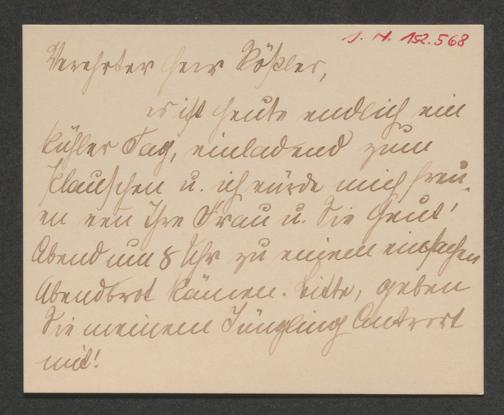 J. N. 152.568
Verehrter Herr Rößler,
es ist heute endlich ein
kühler Tag, einladend zum
plauschen u. ich würde mich freu-
en wen Ihre Frau u. Sie heut'
Abend um 8 Uhr zu einem einfachen
Abendbrot kämen. Bitte, geben
Sie meinem Jüngling Antwort
mit!